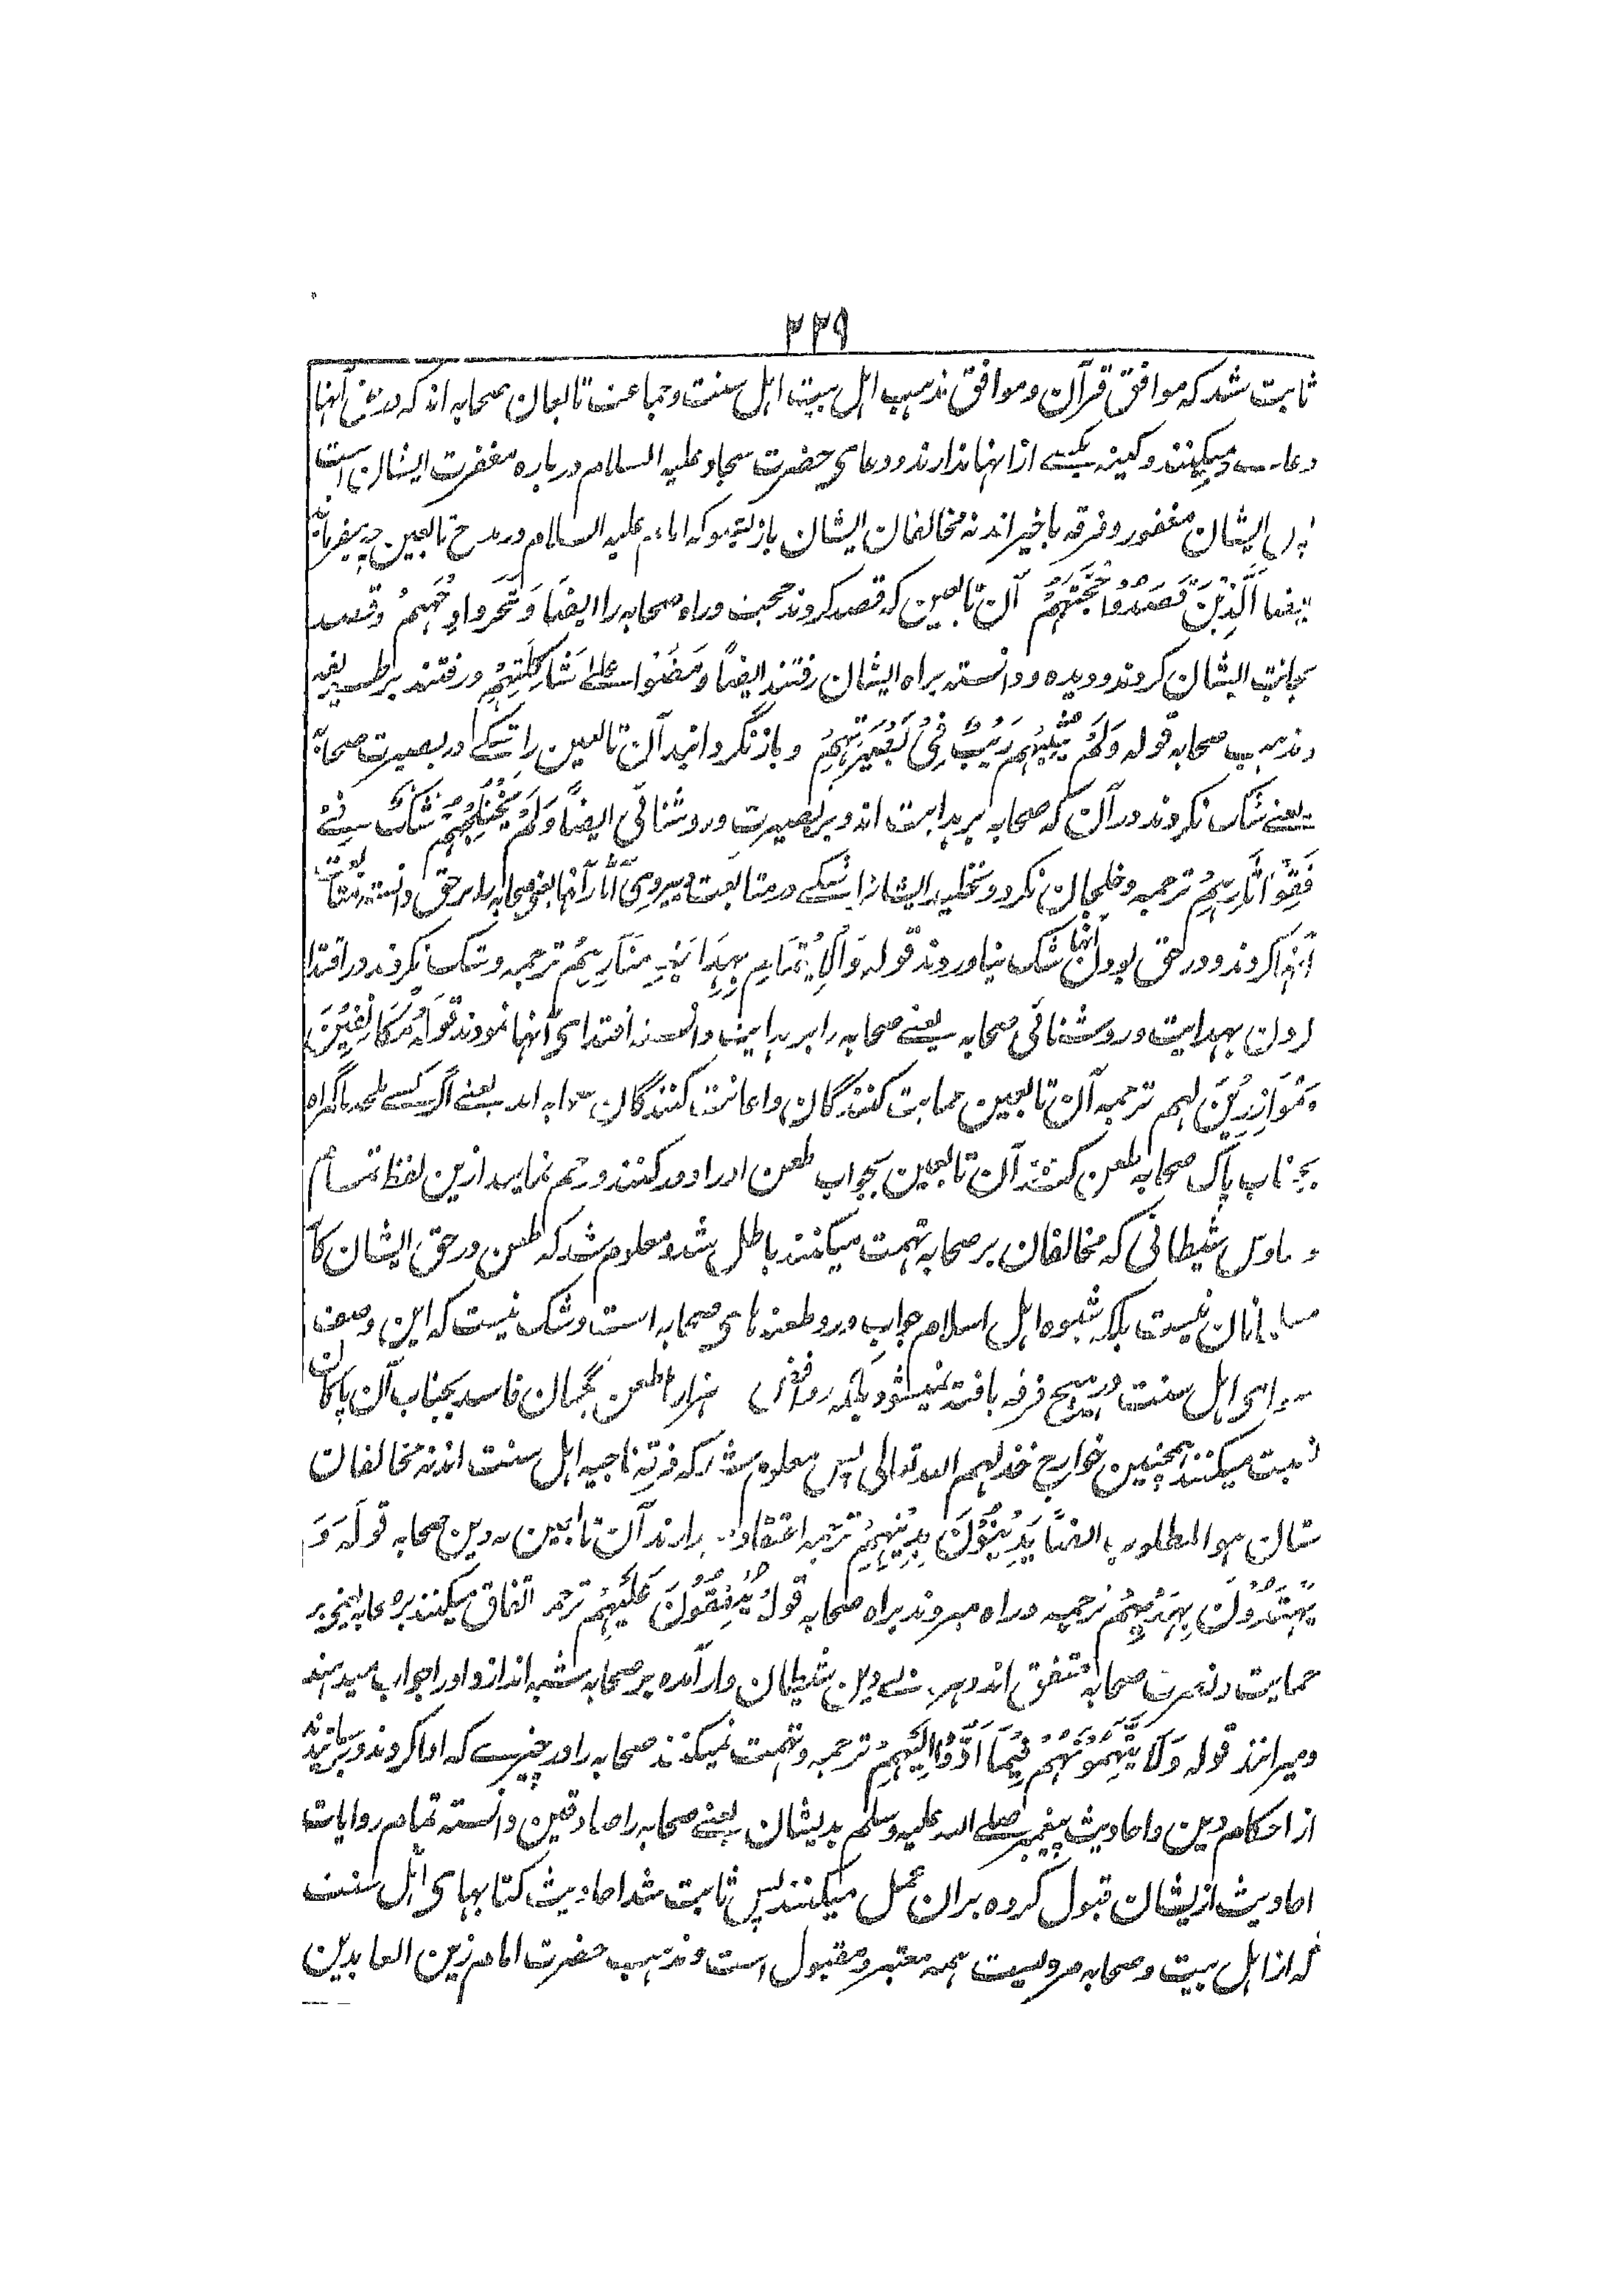 ۲۲۹
ثابت شد که موافق قرآن و موافق مذهب اهل بیت اهل سنت و جماعت تابعان صحابه اند که در حق آنها
دعا میکنند و کینه یکے از آنها ندارند و دعای حضرت سجاد علیه السلام درباره مغفرت ایشان است
ایشان مغفور و فرقه ناخیر اند نه مخالفان ایشان باز که امام علیه السلام در مدح تابعین چه میفرماید
ایضا اَلَّذِیْنَ قَصَدُوْا آن تابعین که قصد کردند محبت و راه صحابه را ایضًا وَتَحَرَّوْا وِجْهَتَهُمْ و قصد
بجانب ایشان کردند و دیده و دانسته براه ایشان رفتند ایضاً وَمَضَوْا عَلٰے شَاكِلَتِهِمْ و رفتند بر طریقه
و مذهب صحابه قوله وَلَمْ يَثْنِهِمْ رَيْبٌ فِیْ بَصِيْرَتِهِمْ و باز نگردانید آن تابعین را شکے در بصیرت صحابه
یعنے شک نکردند در آن که صحابه بر هدایت اند و بر بصیرت و روشنائی ایضًا وَلَمْ يَخْتَلِجْهُمْ شَكٌّ فِے
قَفْوِ اٰثَارِهِمْ ترجمه و خلجان نکرد و نخلید ایشانرا شکے در متابعت و پیروی آثار آنها یعنی صحابه را بر حق دانسته متابعت
آنها کردند و در حق بودن آنها شک نیاوردند قوله وَالْاِیْتِمَامِ بِهِدَايَةِ مَنَارِهِمْ ترجمه و شک نکردند در اقتدا
بهدایت و روشنائی صحابه یعنے صحابه را بر هدایت دانسته اقتدای آنها نمودند قوله مُكَانِفِيْنَ
وَمُوَازِرِيْنَ لهم ترجمه آن تابعین حمایت کنندگان و اعانت کنندگان صحابه اند یعنے اگر کسے ملحد یا گمراه
بجناب پاک صحابه طعن کند آن تابعین بجواب طعن او را دور کنند و رحم نمایند ازین لفظ تمام
وساوس شیطانی که مخالفان بر صحابه تهمت میکنند باطل شد و معلوم شد که طعن در حق ایشان کار
مسلمانان نیست بلکه شیوه اهل اسلام جواب و رد طعنه های صحابه است و شک نیست که این وصف
سوای اهل سنت در هیچ فرقه یافت نمیشود بلکه روافض هزارها طعن بگمان فاسد بجناب آن پاکان
نسبت میکنند همچنین خوارج خذلهم الله تعالی پس معلوم شد که فرقه ناجیه اهل سنت اند نه مخالفان
شان هو المطلوب ایضًا يَدِيْنُوْنَ بِدِيْنِهِمْ ترجمه اعتقاد دارند آن تابعین به دین صحابه قوله وَ
يَهْتَدُوْنَ بِهَدْيِهِمْ ترجمه و راه میروند براه صحابه قوله يَتَّفِقُوْنَ عَلَيْهِمْ ترجمه اتفاق میکنند بر صحابه یعنی بر
حمایت و نصرت صحابه متفق اند و هر بے دین شیطان وار آمده بر صحابه شبه اندازد او را جواب میدهند
و میرانند قوله وَلَا يَتَّهِمُوْنَهُمْ فِيْمَا اَدَّوْا اِلَيْهِمْ ترجمه و تهمت نمیکنند صحابه را در چیزے که ادا کردند و رسانیدند
از احکام دین و احادیث پیغمبر صلے الله علیه وسلم بدیشان یعنے صحابه را صادقین دانسته تمام روایات
احادیث از ایشان قبول کرده بران عمل میکنند پس ثابت شد احادیث کتابهای اهل سنت
که از اهل بیت و صحابه مرویست همه معتبر و مقبول است و مذهب حضرت امام زین العابدین